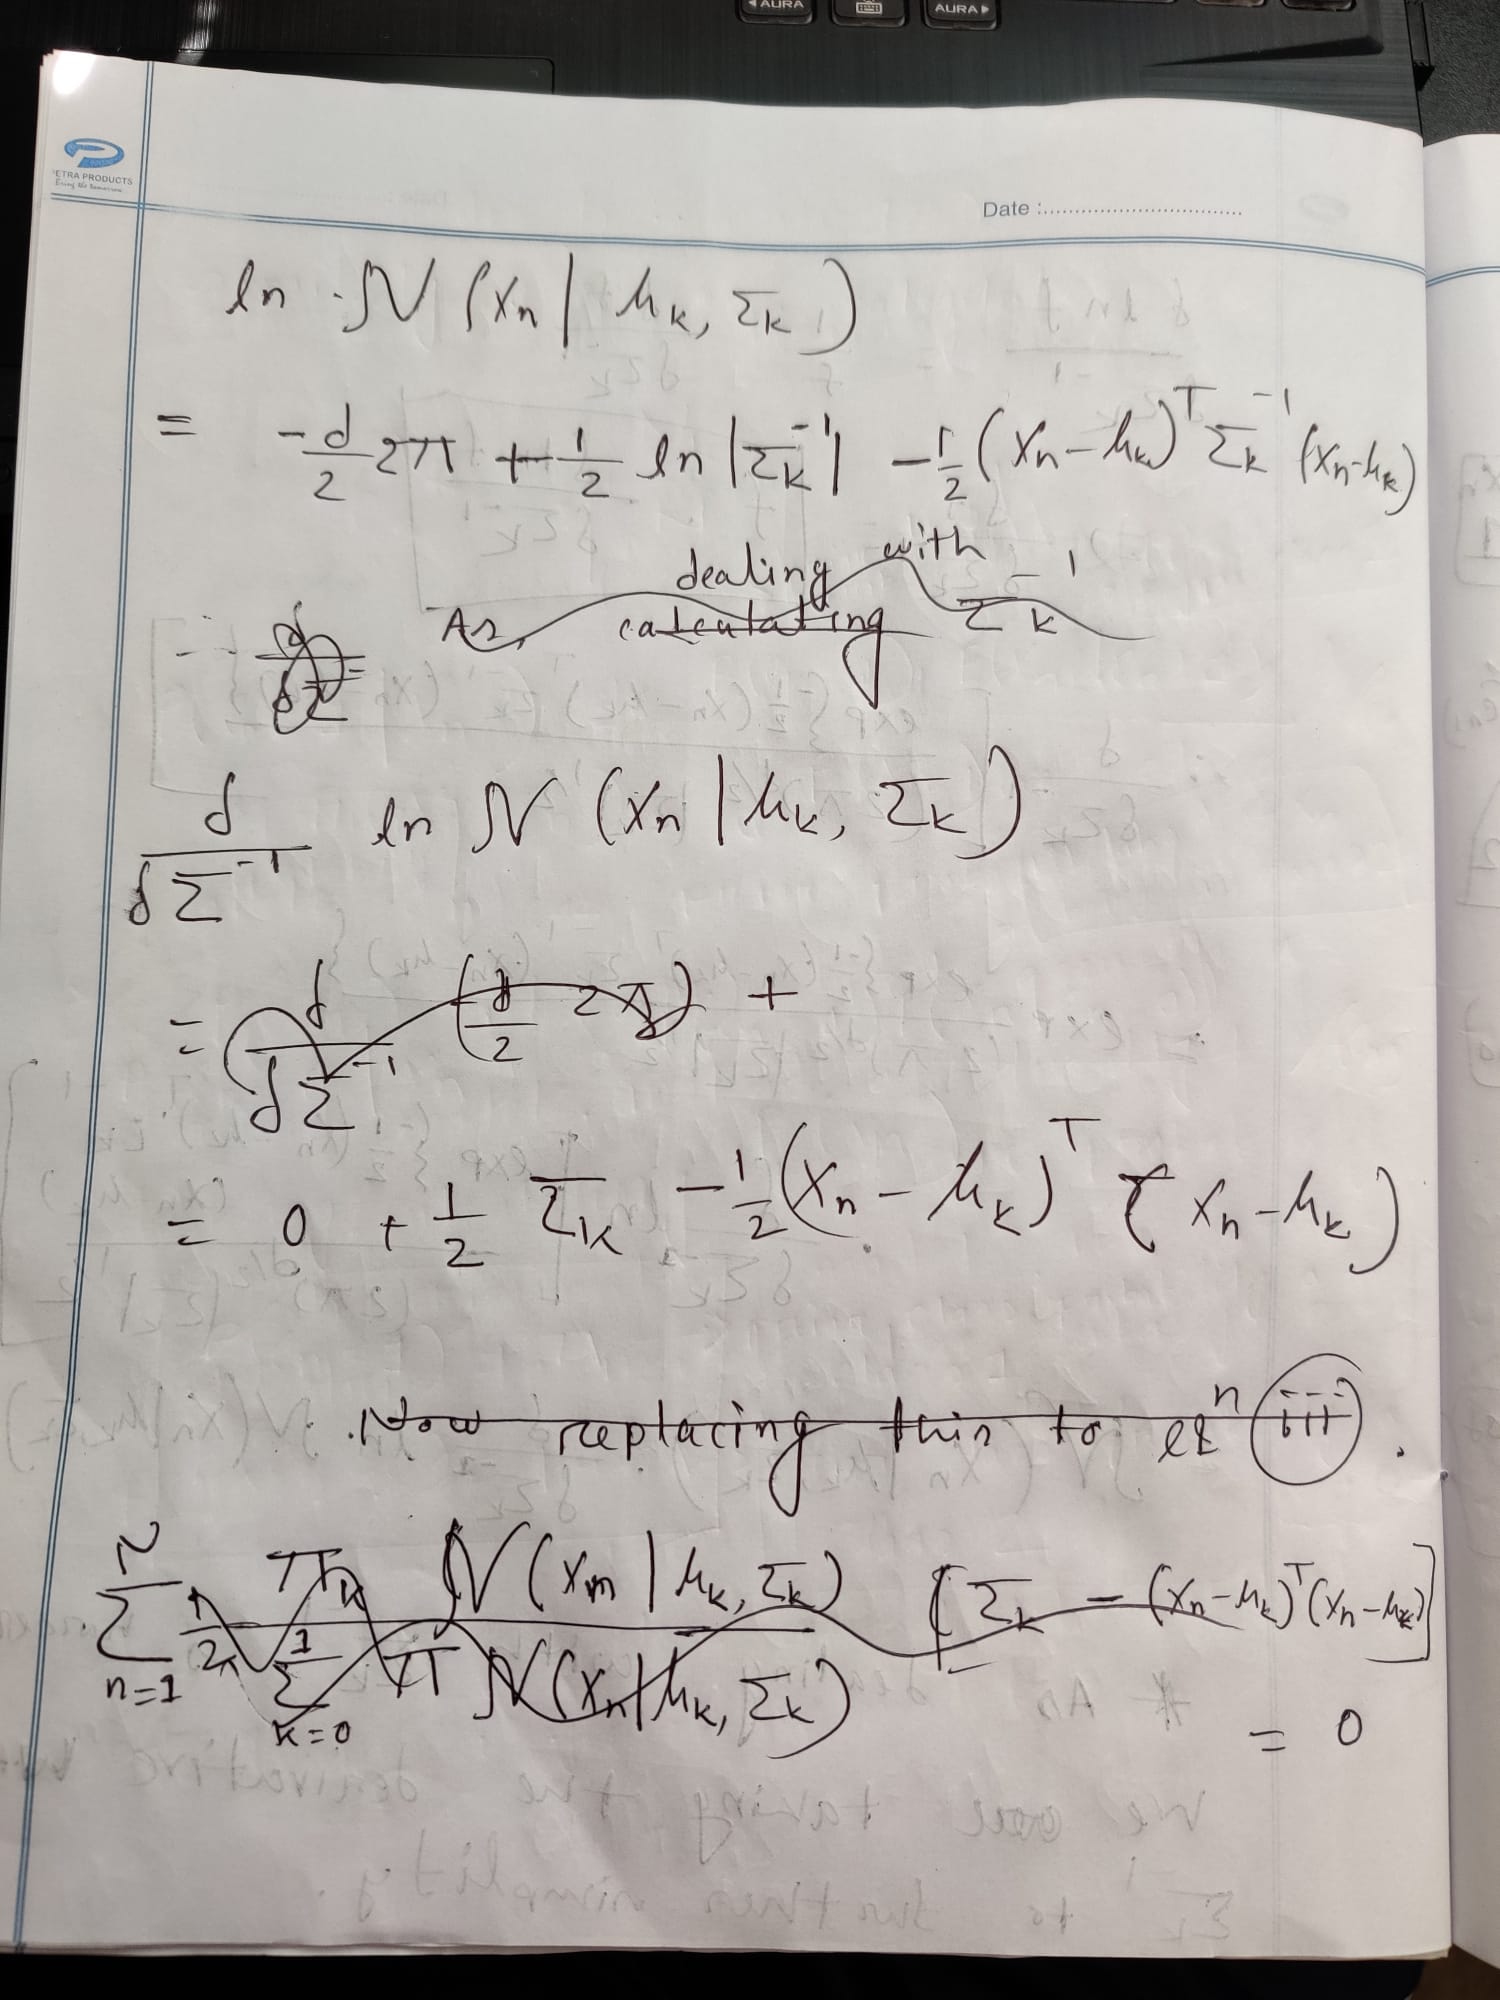 ◄ AURA AURA ►
PETRA PRODUCTS
Date :
ln N (xn | μk, Σk)
= -d/2 2π + 1/2 ln |Σk^-1| - 1/2 (xn - μk)^T Σk^-1 (xn - μk)
dealing with
As, calculating Σk^-1
δ/δΣ^-1 ln N (xn | μk, Σk)
= δ/δΣ^-1 (-d/2 2π) +
= 0 + 1/2 Σk - 1/2 (xn - μk)^T (xn - μk)
Now replacing this to eq^n (iii).
N Σ n=1 1/2 πk N(xn | μk, Σk) / Σ k=0 π N(xn | μk, Σk) [Σk - (xn - μk)^T (xn - μk)]
= 0